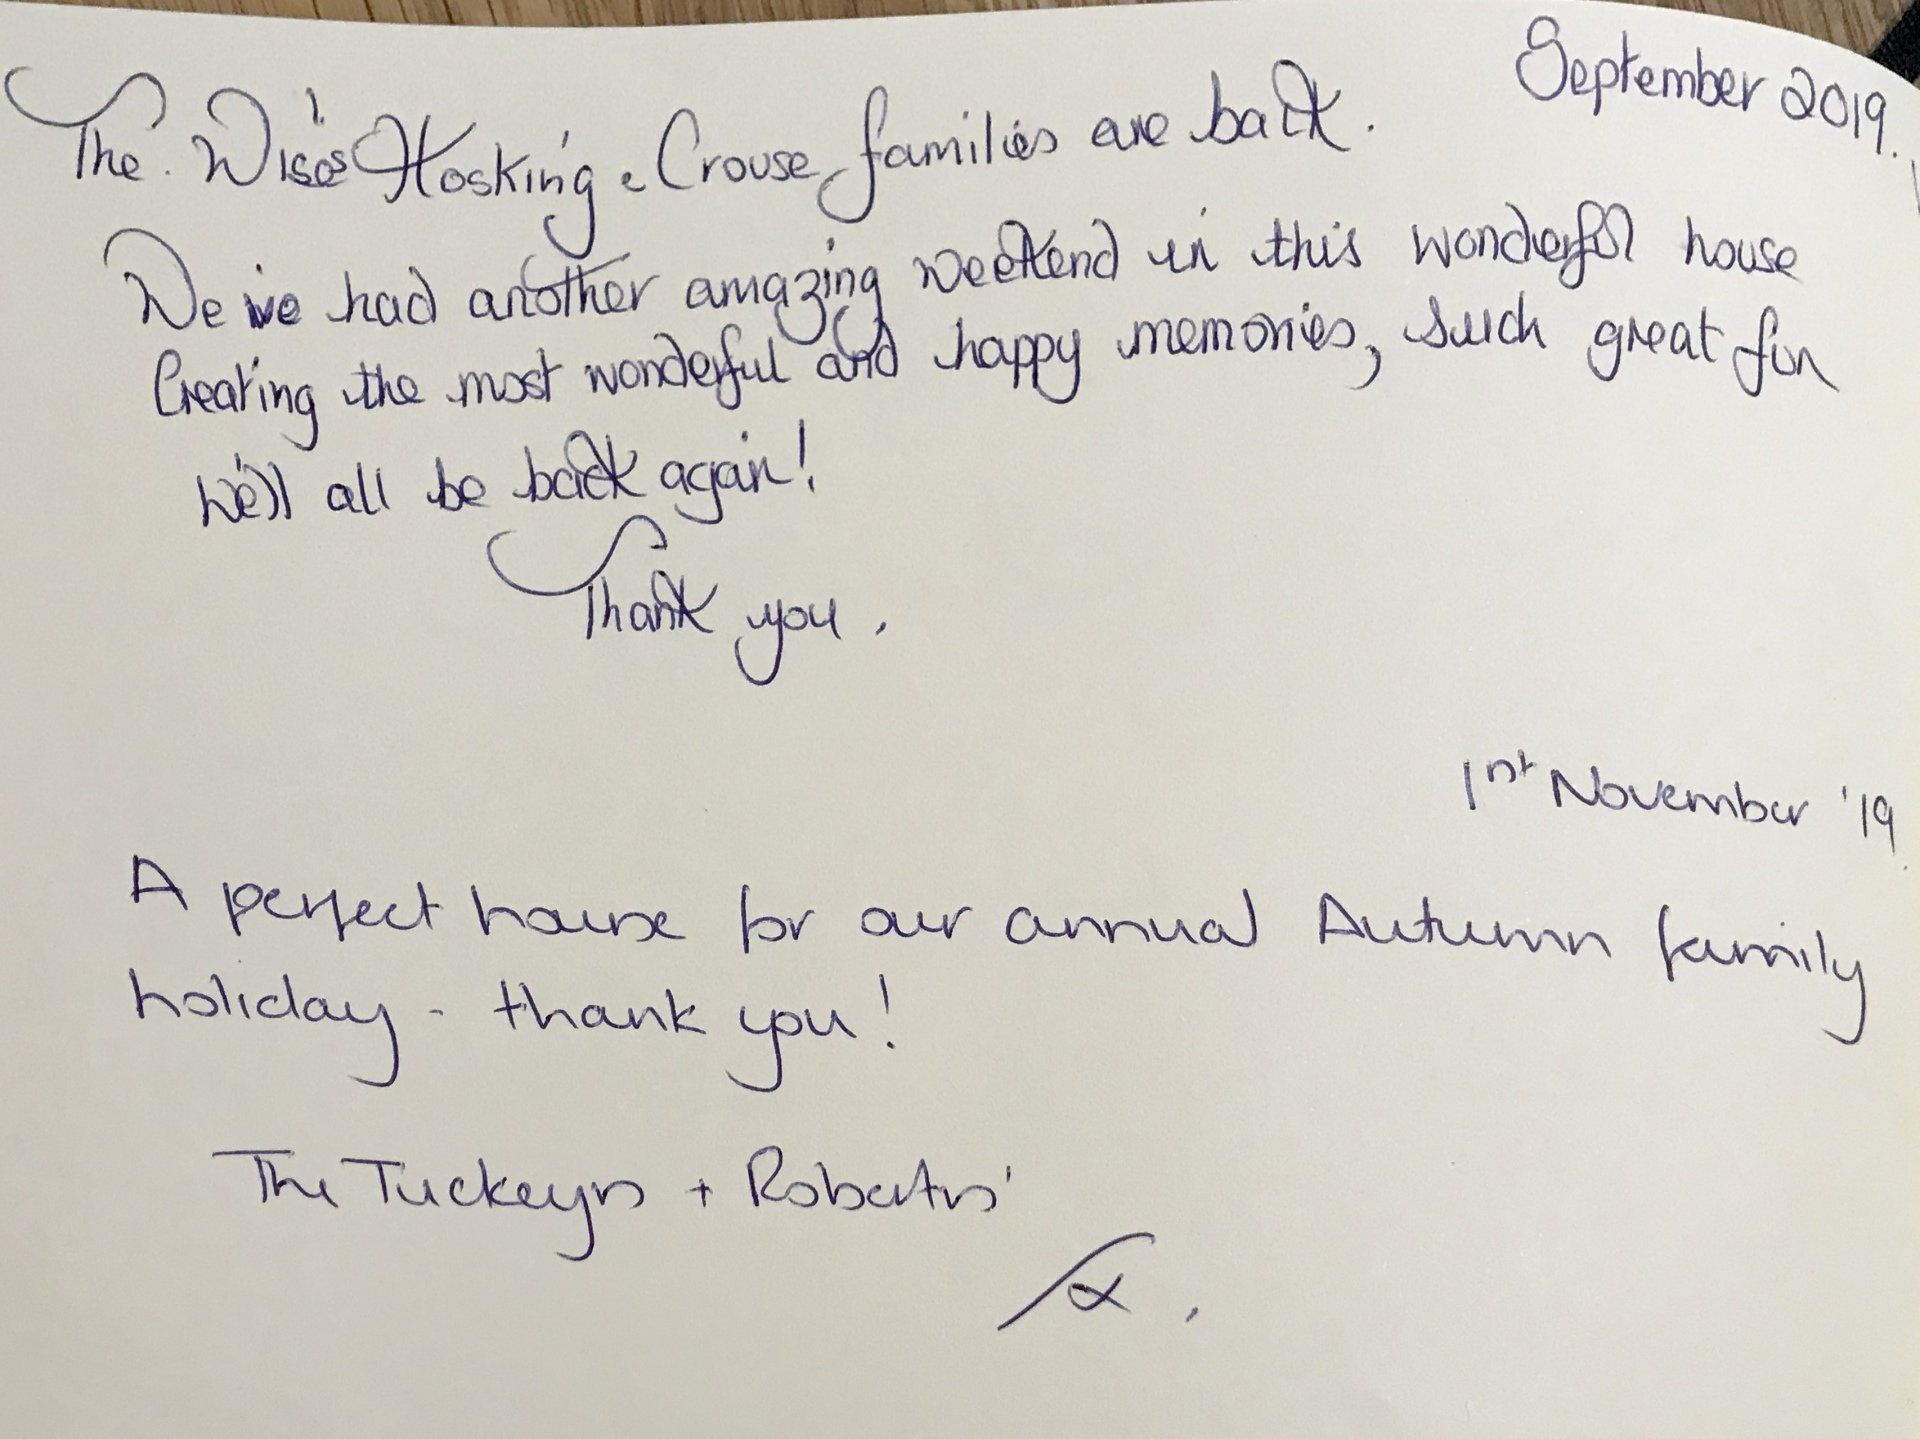 September 2019.
The Wise's Hosking & Crouse families are back.
We've had another amazing weekend in this wonderful house
Creating the most wonderful and happy memories, such great fun
We'll all be back again!
Thank you.
1st November '19
A perfect house for our annual Autumn family
holiday - thank you!
The Tuckeys + Roberts'
x